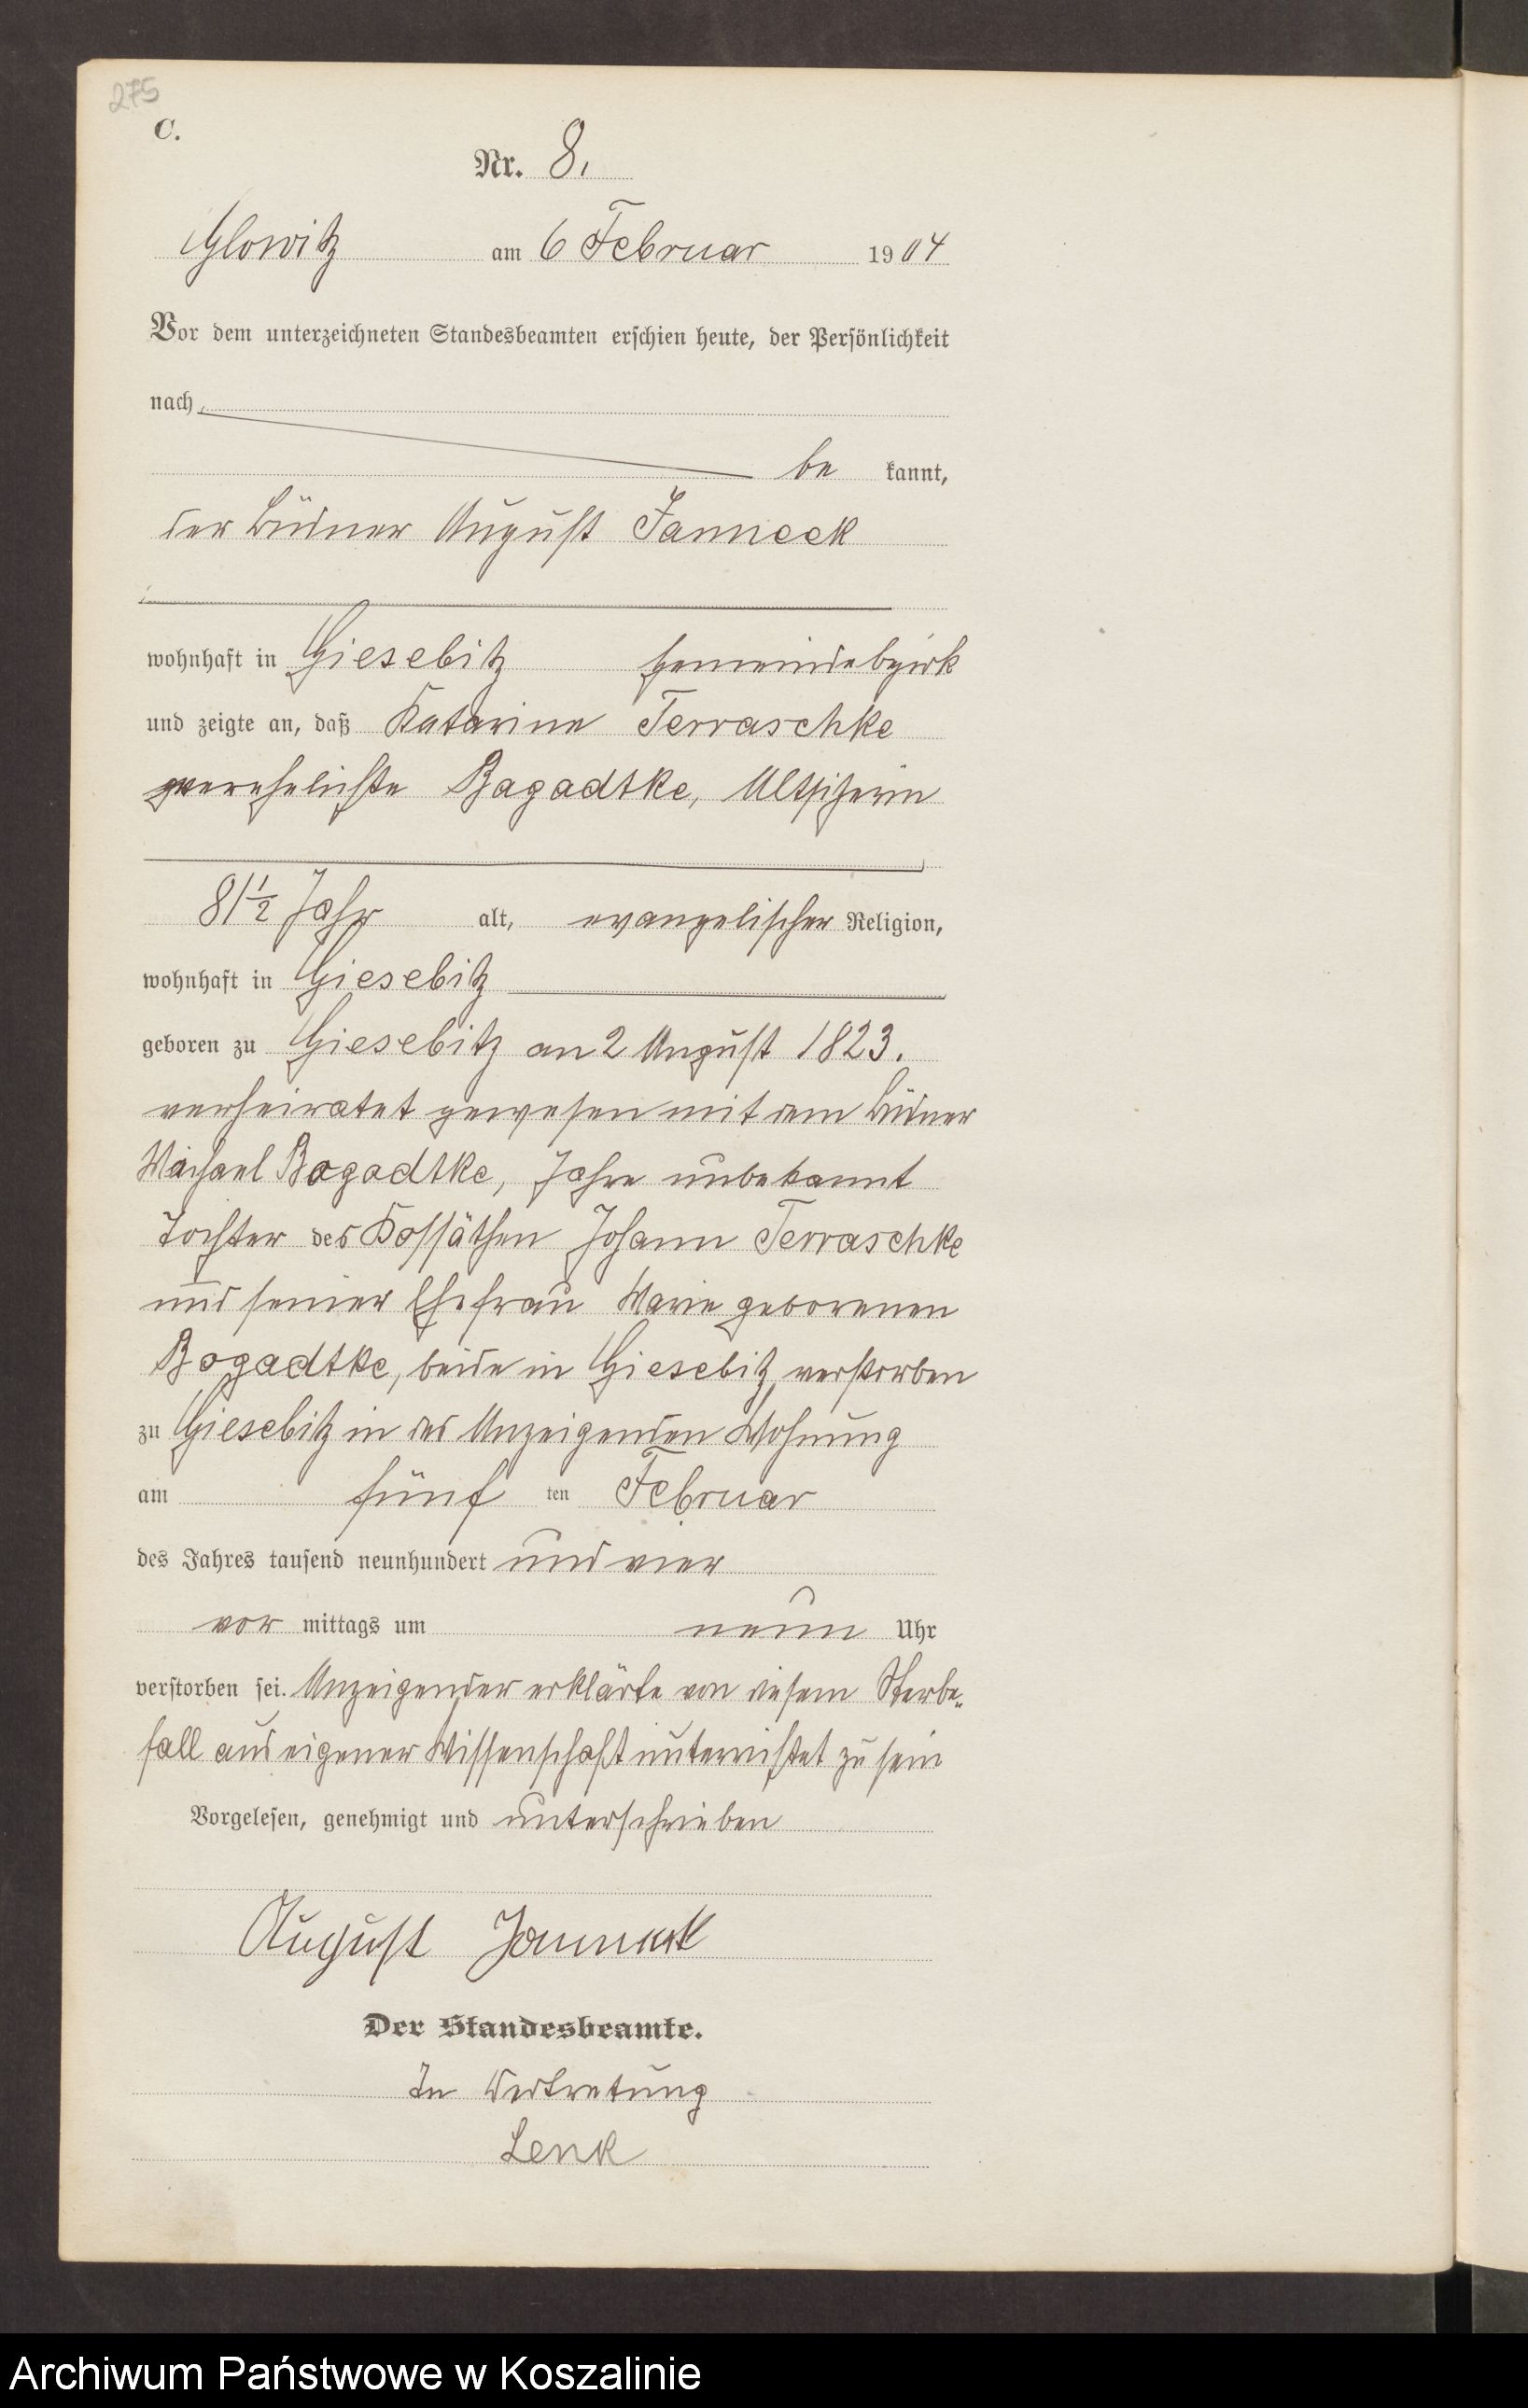 275
C.
Nr. 8.
Glowitz am 6 Februar 1904
Vor dem unterzeichneten Standesbeamten erschien heute, der Persönlichkeit
nach
be kannt,
der Büdner August Janneck
wohnhaft in Giesebitz Gemeindebezirk
und zeigte an, daß Katarine Terraschke
verehelichte Bagadtke, Altsitzerin
81 1/2 Jahr alt, evangelischer Religion,
wohnhaft in Giesebitz
geboren zu Giesebitz an 2 August 1823.
verheiratet gewesen mit dem Büdner
Michael Bogadtke, Jahre unbekannt
Tochter des Kossäthen Johann Terraschke
und seiner Ehefrau Marie geborenen
Bogadtke, beide in Giesebitz verstorben
zu Giesebitz in des Anzeigenden Wohnung
am fünf ten Februar
des Jahres tausend neunhundert und vier
vor mittags um neun Uhr
verstorben sei. Anzeigender erklärte von diesem Sterbe-
fall aus eigener Wissenschaft unterrichtet zu sein
Vorgelesen, genehmigt und unterschrieben
August Janneck
Der Standesbeamte.
In Vertretung
Lenk
Archiwum Państwowe w Koszalinie